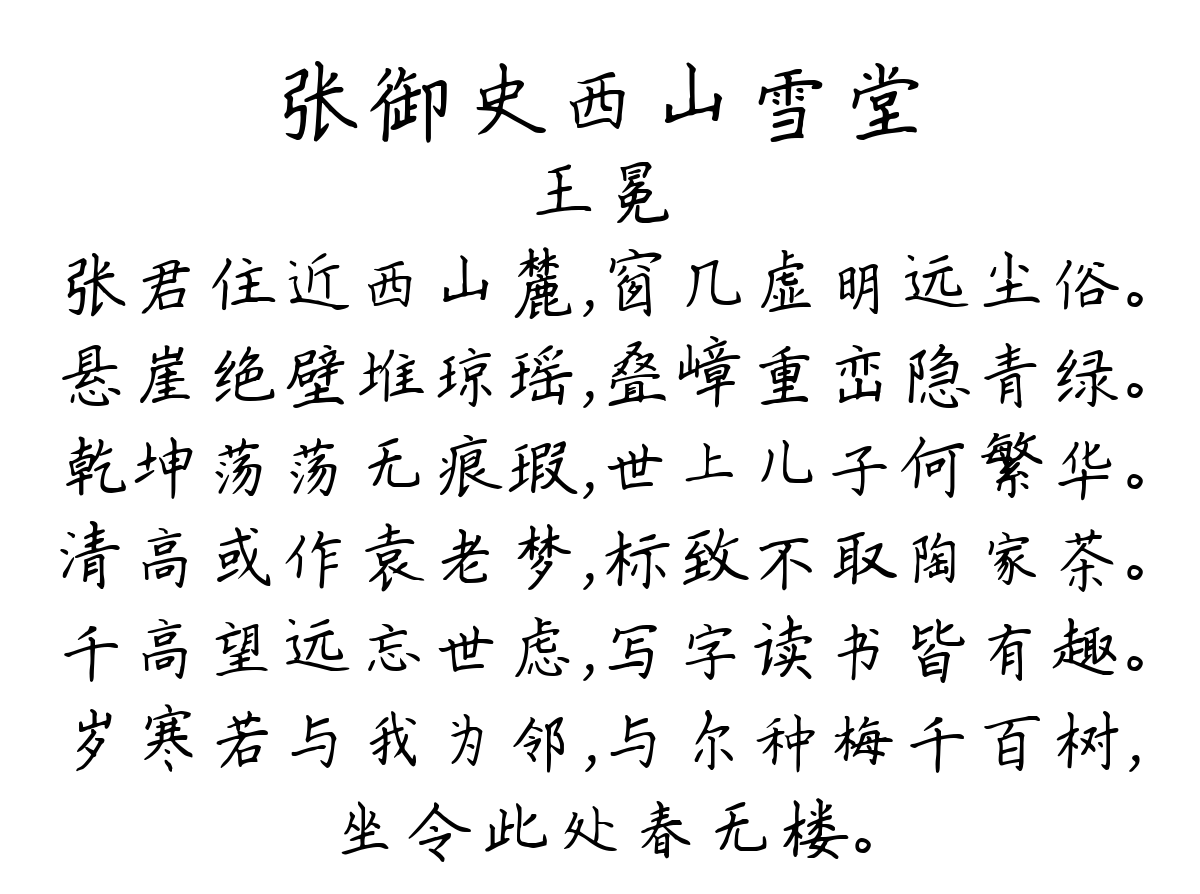 张御史西山雪堂
王冕
张君住近西山麓,窗几虚明远尘俗。
悬崖绝壁堆琼瑶,叠嶂重峦隐青绿。
乾坤荡荡无痕瑕,世上儿子何繁华。
清高或作袁老梦,标致不取陶家茶。
千高望远忘世虑,写字读书皆有趣。
岁寒若与我为邻,与尔种梅千百树,
坐令此处春无楼。